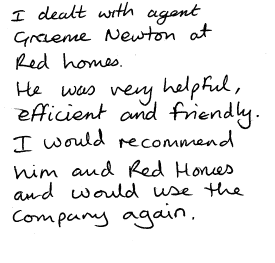 I dealt with agent
Graeme Newton at
Red homes.
He was very helpful,
efficient and friendly.
I would recommend
him and Red Homes
and would use the
company again.